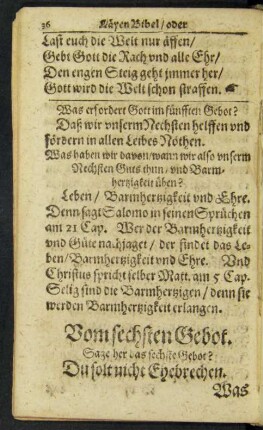 36 Läyen Bibel / oder
Last euch die Welt nur äffen /
Gebt Gott die Rach und alle Ehr /
Den engen Steig geht jmmer her /
Gott wird die Welt schon straffen.
Was erfordert Gott im fünfften Gebot?
Daß wir vnserm Nechsten helffen vnd
fördern in allen Leibes Nöthen.
Was haben wir davon / wann wir also vnserm
Nechsten Guts thun / vnd Barm-
hertzigkeit üben?
Leben / Barmhertzigkeit vnd Ehre.
Denn sagt Salomo in seinen Sprüchen
am 21 Cap. Wer der Barmhertzigkeit
vnd Güte nachjaget / der findet das Le-
ben / Barmhertzigkeit vnd Ehre. Vnd
Christus spricht selber Matt. am 5 Cap.
Selig sind die Barmhertzigen / denn sie
werden Barmhertzigkeit erlangen.
Vom sechsten Gebot.
Sage her das sechste Gebot?
Du solt nicht Ehebrechen.
Was